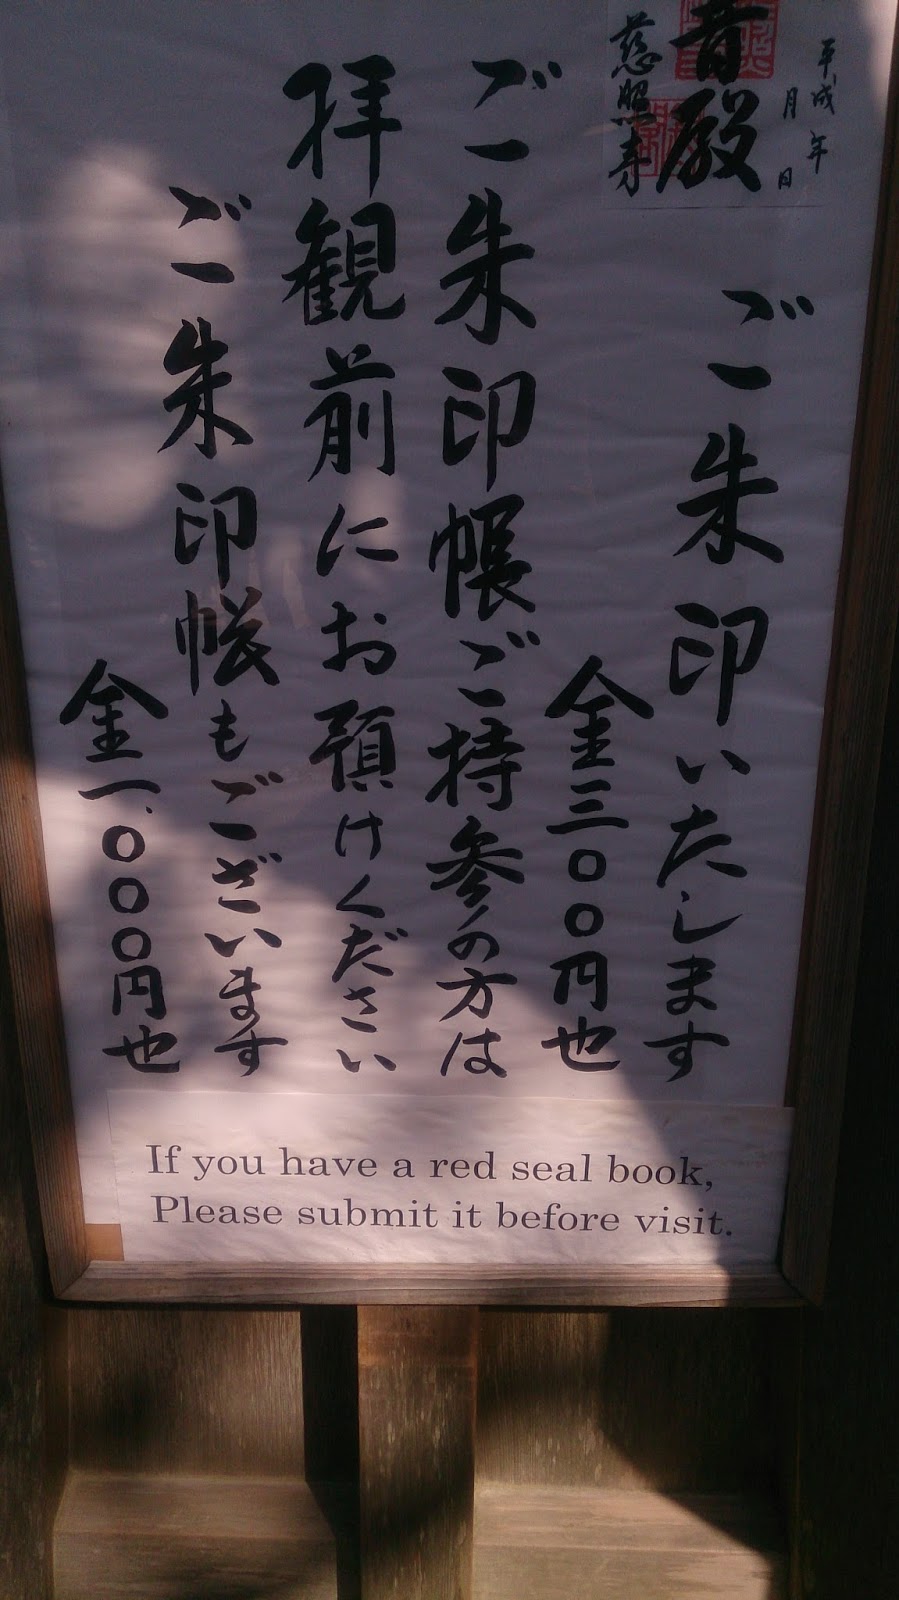 平成 年
月 日
音殿
慈照寺
ご朱印いたします
金三〇〇円也
ご朱印帳ご持参の方は
拝観前にお預けください
ご朱印帳もございます
金一、〇〇〇円也
If you have a red seal book,
Please submit it before visit.